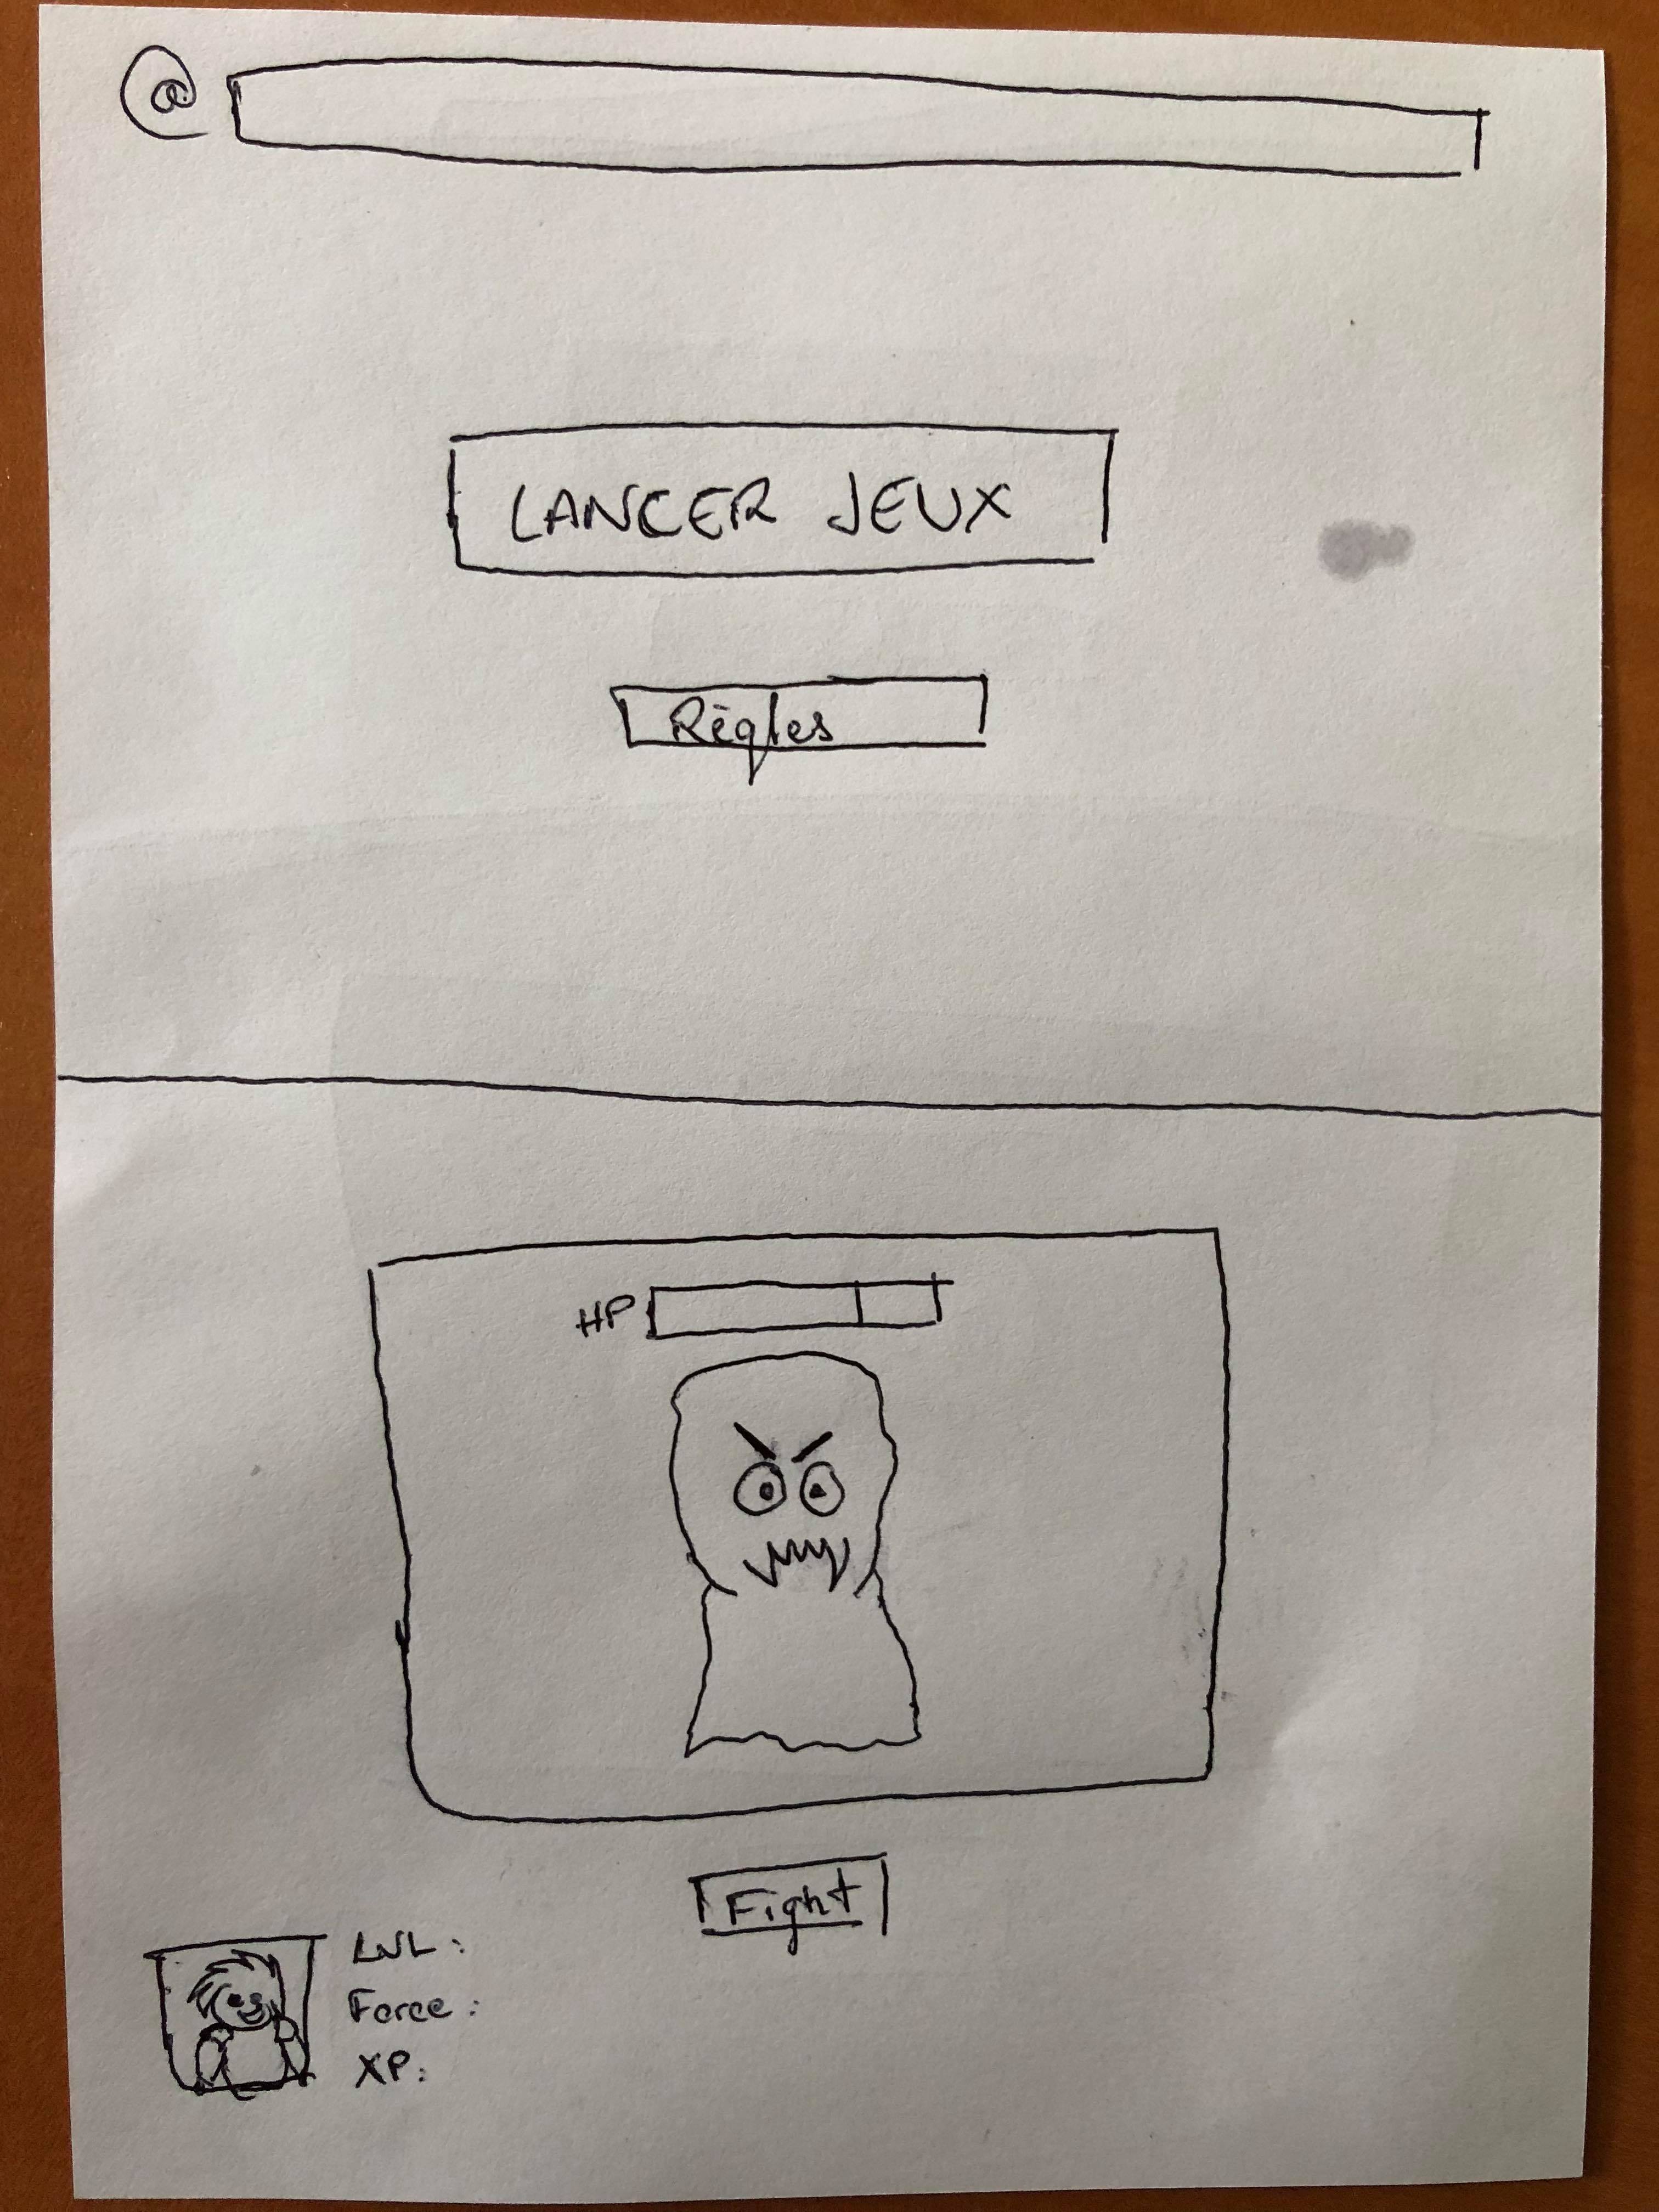 @
LANCER JEUX
Règles
HP
Fight
LVL :
Force :
XP :